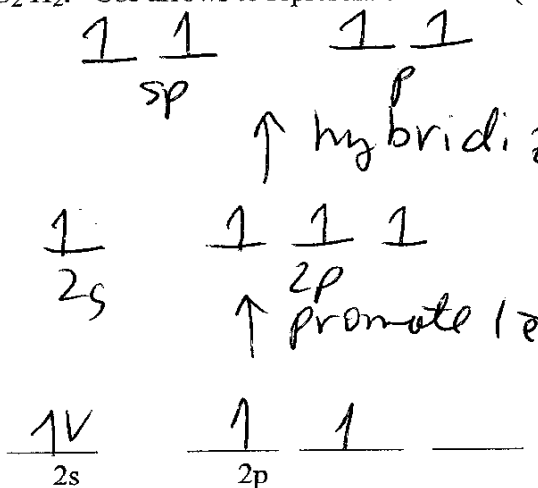 1 1 1 1
sp p
↑ hybridi
1 1 1 1
2s 2p
↑ promote 1 e
1V 1 1
2s 2p